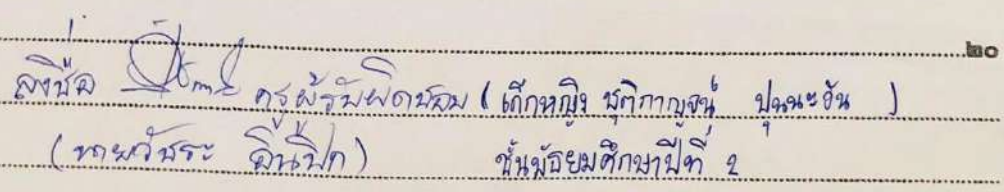 ๒๐
ลงชื่อ ครูผู้รับผิดชอบ (เด็กหญิง ชุติกาญจน์ ปุนนะอัน )
(นายวัชระ อินปิก) ชั้นมัธยมศึกษาปีที่ 2